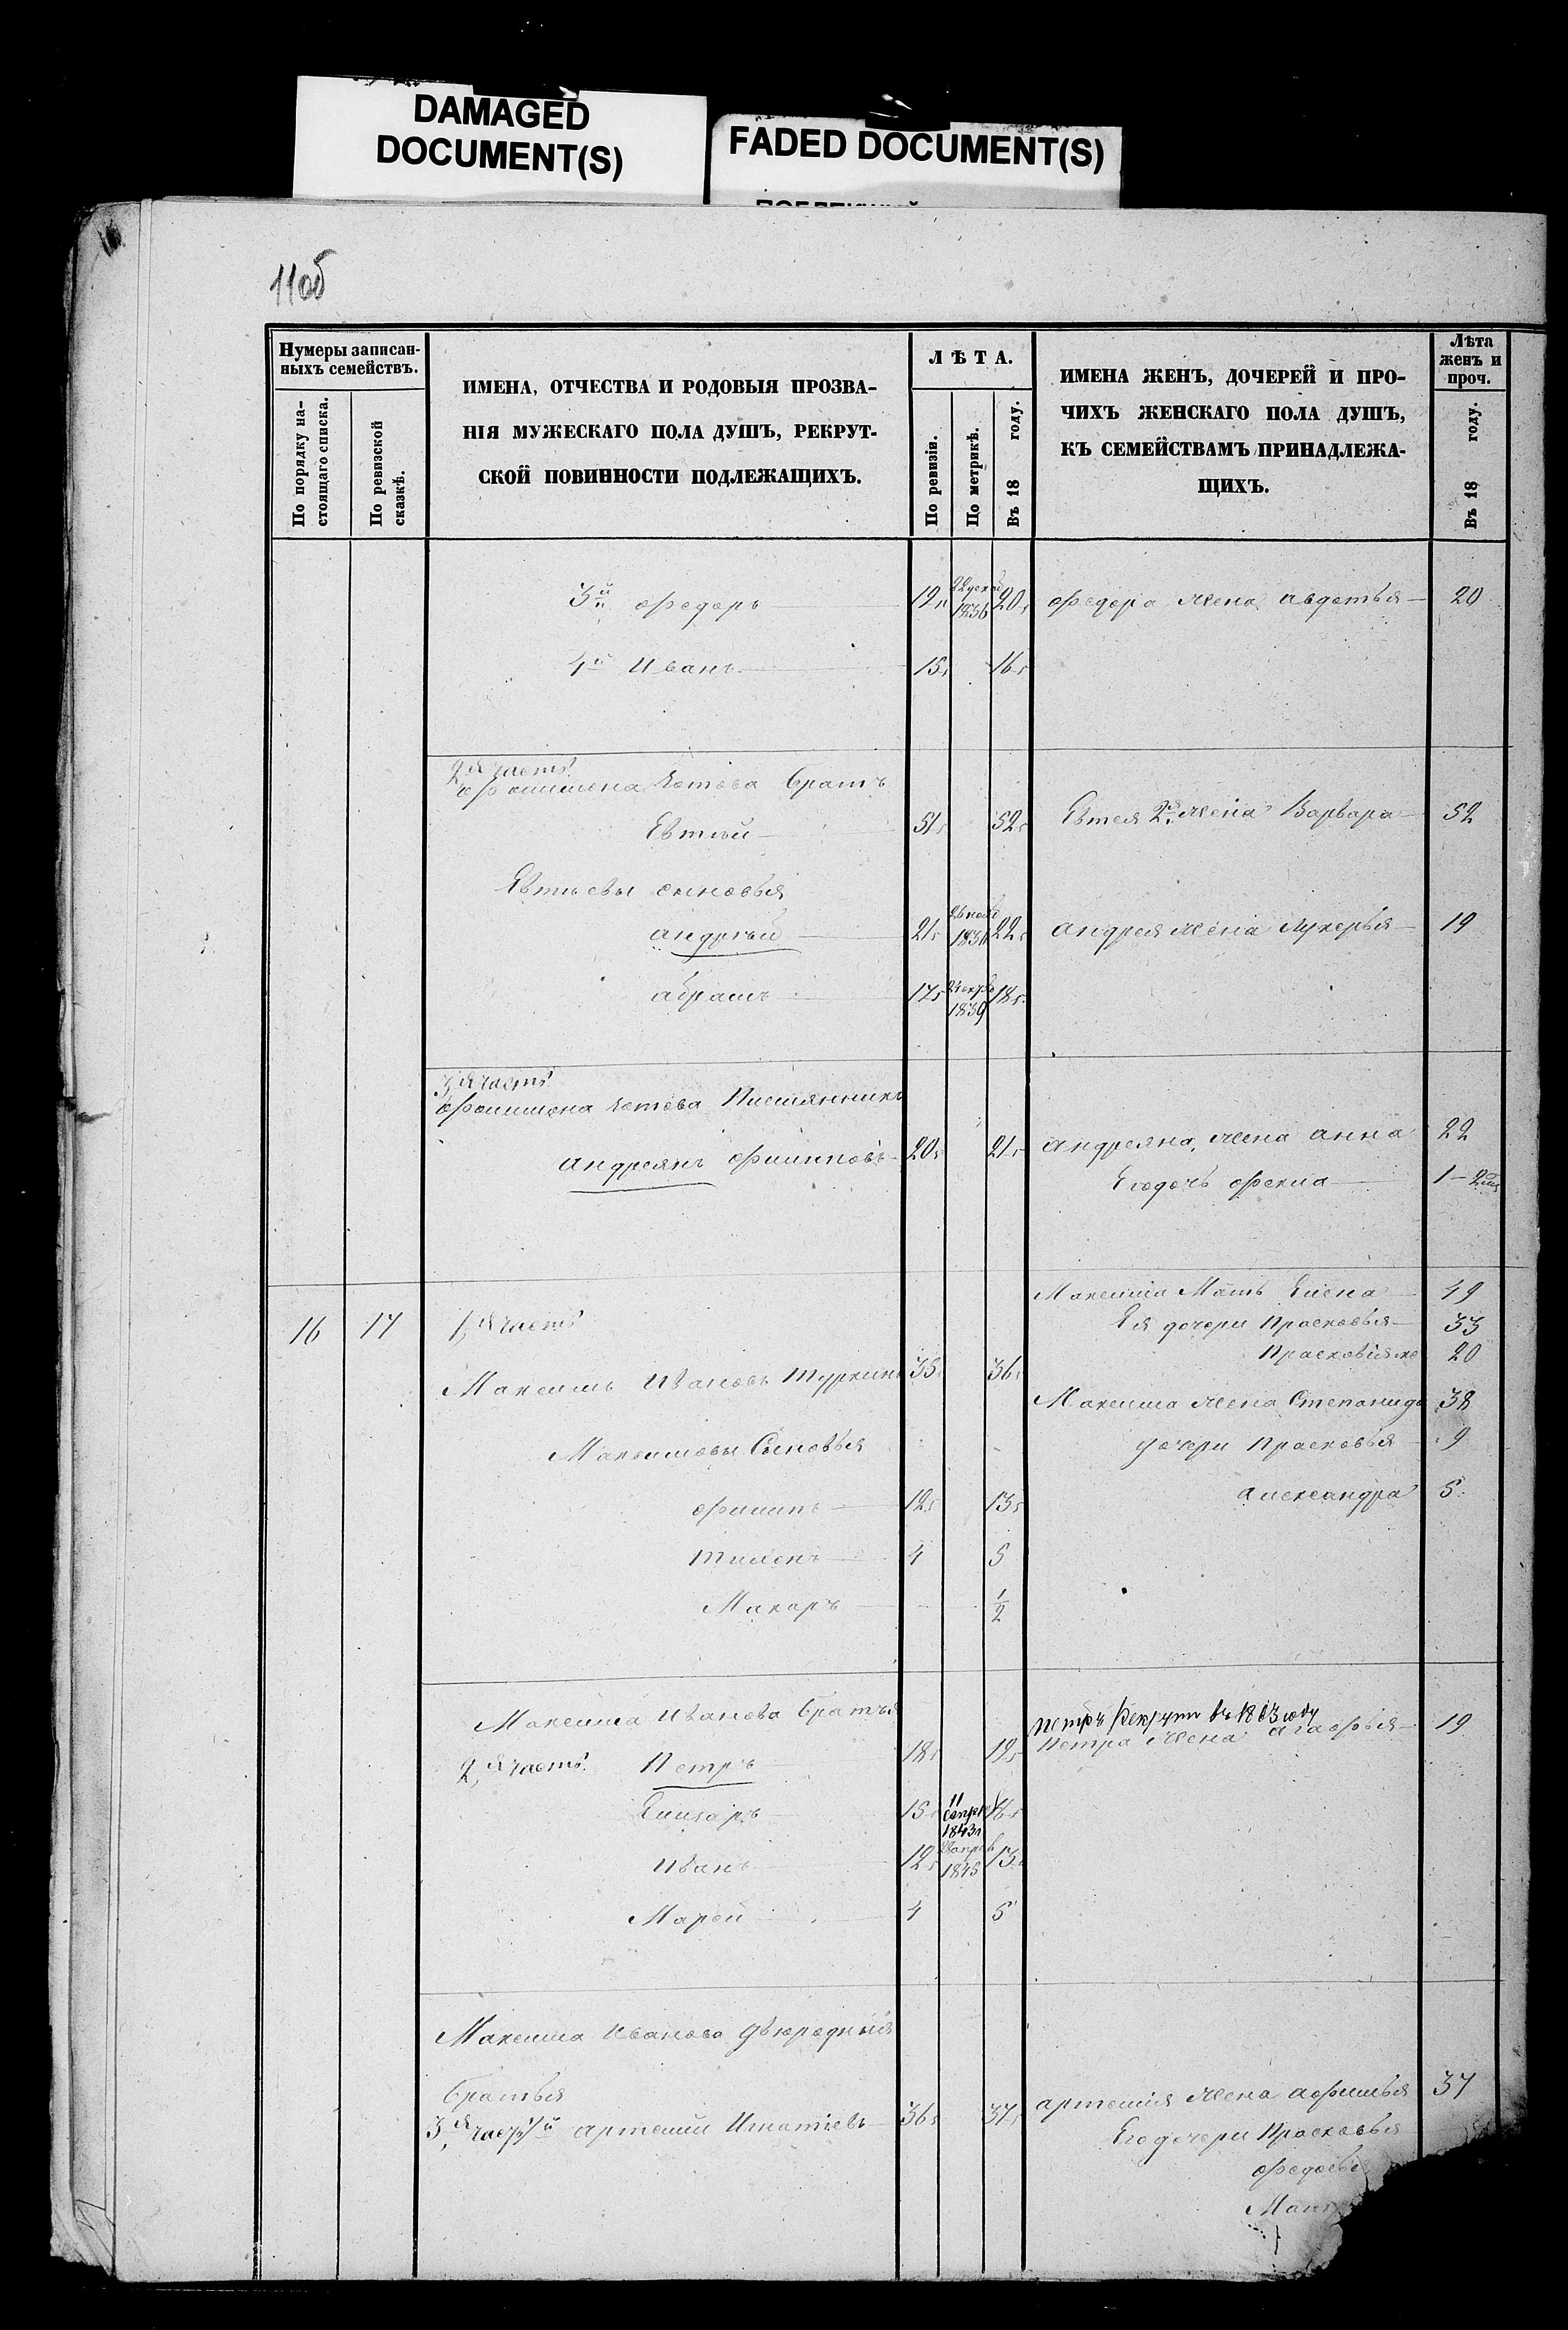 DAMAGED
DOCUMENT(S)
FADED DOCUMENT(S)
11об
Нумеры записан-
ныхъ семействъ.
По порядку на-
стоящаго списка.
По ревизской
сказкѣ.
ИМЕНА, ОТЧЕСТВА И РОДОВЫЯ ПРОЗВА-
НІЯ МУЖЕСКАГО ПОЛА ДУШЪ, РЕКРУТ-
СКОЙ ПОВИННОСТИ ПОДЛЕЖАЩИХЪ.
ЛѢТА.
По ревизіи.
По метрикѣ.
Въ 18 году.
ИМЕНА ЖЕНЪ, ДОЧЕРЕЙ И ПРО-
ЧИХЪ ЖЕНСКАГО ПОЛА ДУШЪ,
КЪ СЕМЕЙСТВАМЪ ПРИНАДЛЕЖА-
ЩИХЪ.
Лѣта
женъ и
проч.
Въ 18 году.
3й Федоръ 12 22 1836 20 Федора жена Авдотья 20
4й Иванъ 15 16
2я часть
Котова братъ
Евтѣй 51 52 Евтея 2я жена Варвара 52
Евтѣевы сыновья
Андрѣй 21 1836 22 Андрея жена Лукерья 19
Абрамъ 17 1839 18
3я часть
Котова Племянникъ
Андреянъ Филиповъ 20 21 Андреяна жена Анна 22
Его дочь Фекла 1
16 17 1я часть
Максима Мать Елена 49
Ея дочери Прасковья 33
Прасковія же 20
Максимъ Ивановъ Туркинъ 35 36
Максима жена Степанида 38
Максимовы Сыновья
дочери Прасковья 9
Филипъ 12 13 Александра 5
4 5
Макаръ ½
Максима Иванова братья
Петръ Рекрутъ въ 1863 году
2я часть Петръ 18 19 Петра жена Агафья 19
Елизаръ 15 11 1843 16
Иванъ 12 1845 13
Марой 4 5
Максима Иванова двюродныя
братья
3я часть Артемій Игнатіевъ 36 37
Артемія жена Афимья 37
Его дочери Прасковья